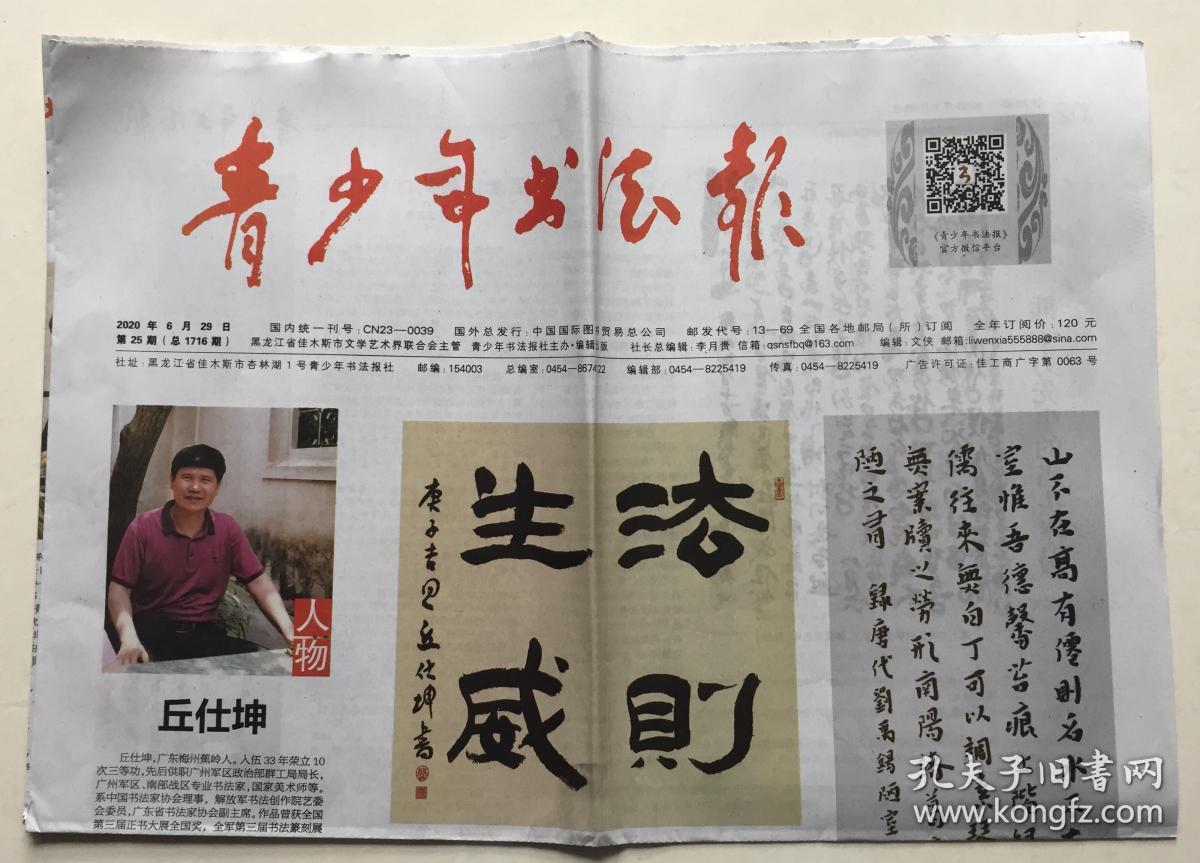 青少年书法报
《青少年书法报》
官方微信平台
2020 年 6 月 29 日
第 25 期（总 1716 期）
国内统一刊号：CN23—0039 国外总发行：中国国际图书贸易总公司 邮发代号：13—69 全国各地邮局（所）订阅 全年订阅价：120 元
黑龙江省佳木斯市文学艺术界联合会主管 青少年书法报社主办·编辑出版 社长总编辑：李月贵 信箱：qsnsfbq@163.com 编辑：文侠 邮箱:liwenxia555888@sina.com
社址：黑龙江省佳木斯市杏林湖 1 号青少年书法报社 邮编：154003 总编室：0454—867422 编辑部：0454—8225419 传真：0454—8225419 广告许可证：佳工商广字第 0063 号
人物
丘仕坤
丘仕坤，广东梅州蕉岭人。入伍 33 年荣立 10
次三等功，先后供职广州军区政治部群工局局长，
广州军区、南部战区专业书法家，国家美术师等。
系中国书法家协会理事，解放军书法创作院艺委
会委员，广东省书法家协会副主席。作品曾获全国
第三届正书大展全国奖，全军第三届书法篆刻展
法則
生威
庚子吉日丘仕坤書
山不在高有僊則名水
室惟吾德馨苔痕上階
儒往來無白丁可以調素琴
無案牘之勞形南陽諸葛
陋之有 録唐代劉禹錫陋室
孔夫子旧书网
www.kongfz.com